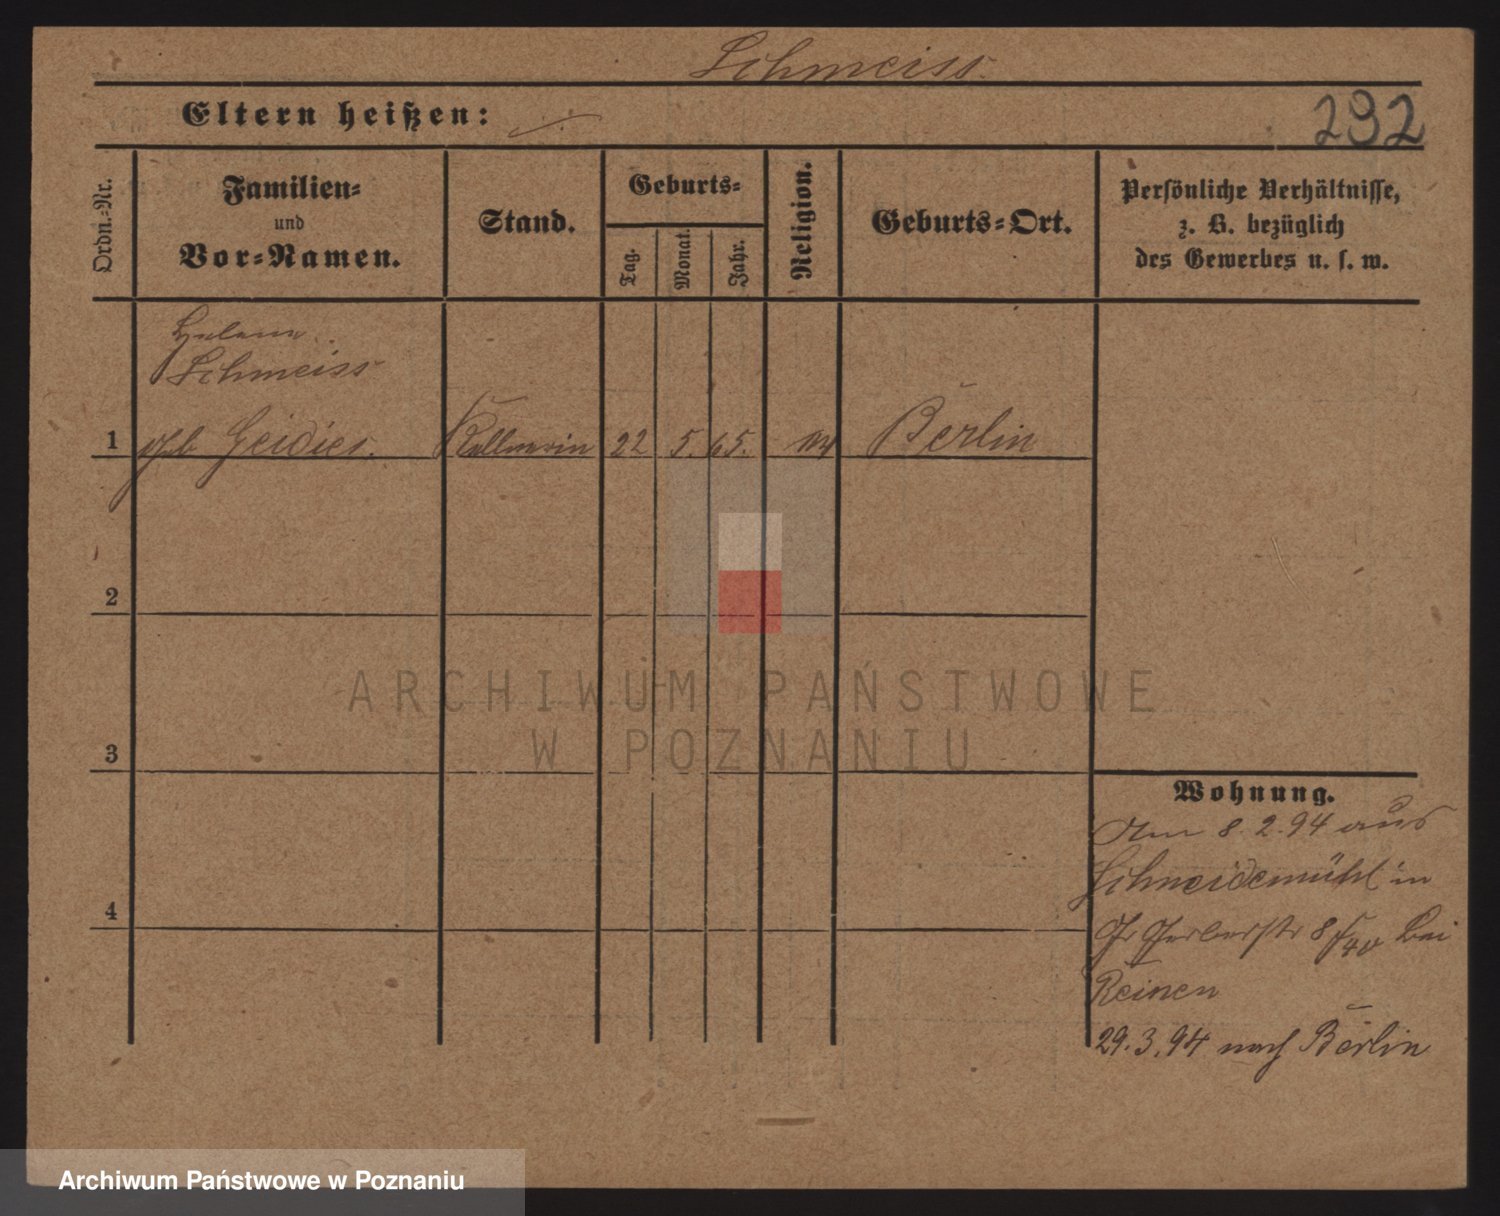 Schmeiss.
Eltern heißen: ./.
292
Ordn.-Nr.
Familien-
und
Vor-Namen.
Stand.
Geburts-
Tag.
Monat.
Jahr.
Religion.
Geburts-Ort.
Persönliche Verhältnisse,
z. B. bezüglich
des Gewerbes u. s. w.
Helene
Schmeiss
1 geb Geidies. Kellnerin 22 5. 65. Berlin
2
3
4
Wohnung.
Am 8. 2. 94 aus
Schneidemühl in
Gr Gerberstr 8/40 bei
Reinen
29. 3. 94 nach Berlin
ARCHIWUM PAŃSTWOWE
W POZNANIU
Archiwum Państwowe w Poznaniu